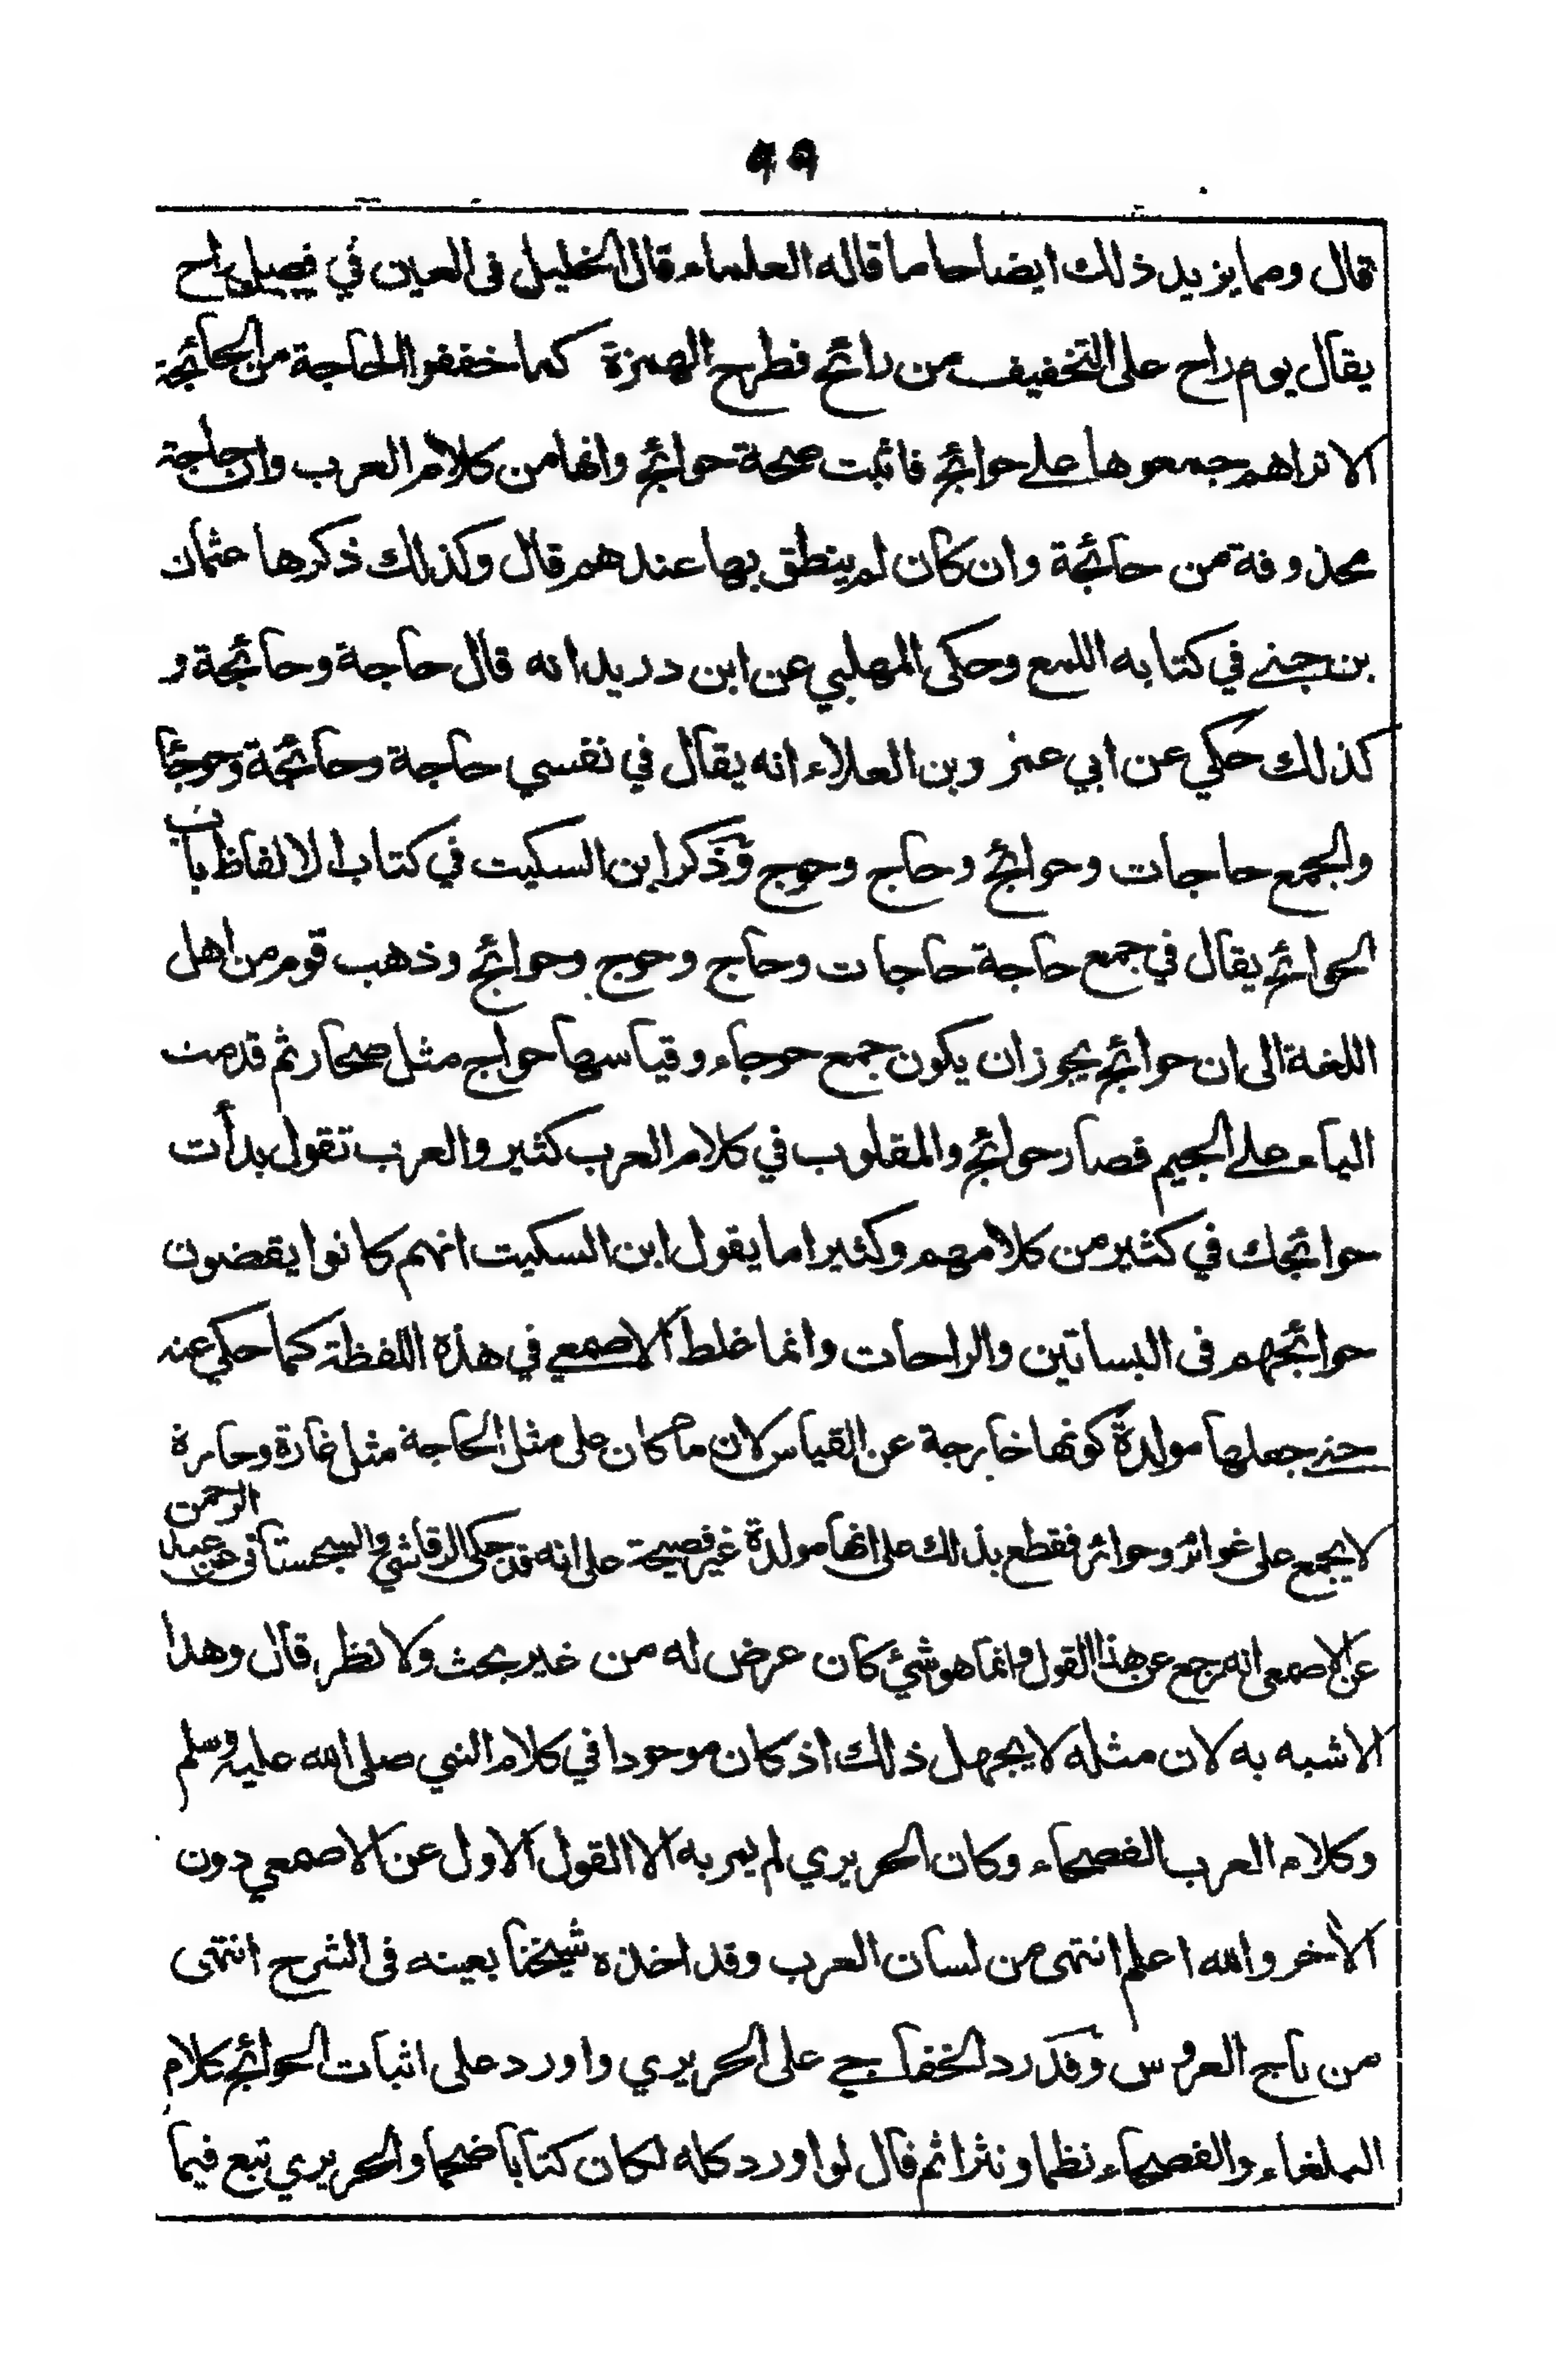 ٩٩
قال ومما يزيد ذلك ايضاحا ما قاله العلماء قال الخليل فى العين في فصل راح
يقال يوم راح على التخفيف من رائح فطرح الهمزة كما خففوا الحاجة من الحائجة
الا تراهم جمعوها على حوائج فاثبت صحة حوائج وانها من كلام العرب وان حاجة
محذوفة من حائجة وان كان لم ينطق بها عندهم قال وكذلك ذكرها عثمان
بن جنے في كتابه اللمع وحكى المهلبي عن ابن دريد انه قال حاجة وحائجة و
كذلك حكي عن ابي عمر وبن العلاء انه يقال في نفسي حاجة وحائجة وحوجاء
والجمع حاجات وحوائج وحاج وحوج وذكر ابن السكيت في كتاب الالفاظ باب
الحوائج يقال في جمع حاجة حاجات وحاج وحوج وحوائج وذهب قوم من اهل
اللغة الى ان حوائج يجوز ان يكون جمع حوجاء وقياسها حواج مثل صحار ثم قدمت
الياء على الجيم فصار حوائج والمقلوب في كلام العرب كثير والعرب تقول بدأت
حوائجك في كثير من كلامهم وكثيرا ما يقول ابن السكيت انهم كانوا يقضون
حوائجهم فى البساتين والراحات وانما غلط الاصمعي في هذه اللفظة كما حكي عنه
حتى جعلها مولدة كونها خارجة عن القياس لان ما كان على مثل الحاجة مثل غارة وحارة
لا يجمع على غوائر وحوائر فقطع بذلك على انها مولدة غير فصيحة على انه قد حكى الرقاشي والسجستانى عن عبد الرحمن
عن الاصمعى انه رجع عن هذا القول وانما هو شئ كان عرض له من غير بحث ولا نظر قال وهذا
الاشبه به لان مثله لا يجهل ذلك اذ كان موجودا في كلام النبي صلى الله عليه وسلم
وكلام العرب الفصحاء وكان الحريري لم يمر به الا القول الاول عن الاصمعي دون
الأخر والله اعلم انتهى من لسان العرب وقد اخذه شيخنا بعينه فى الشرح انتهى
من تاج العروس وقد رد الخفاجي على الحريري واورد على اثبات الحوائج كلام
البلغاء والفصحاء نظما ونثرا ثم قال لو اورد كله لكان كتابا ضخما والحريري تبع فيما